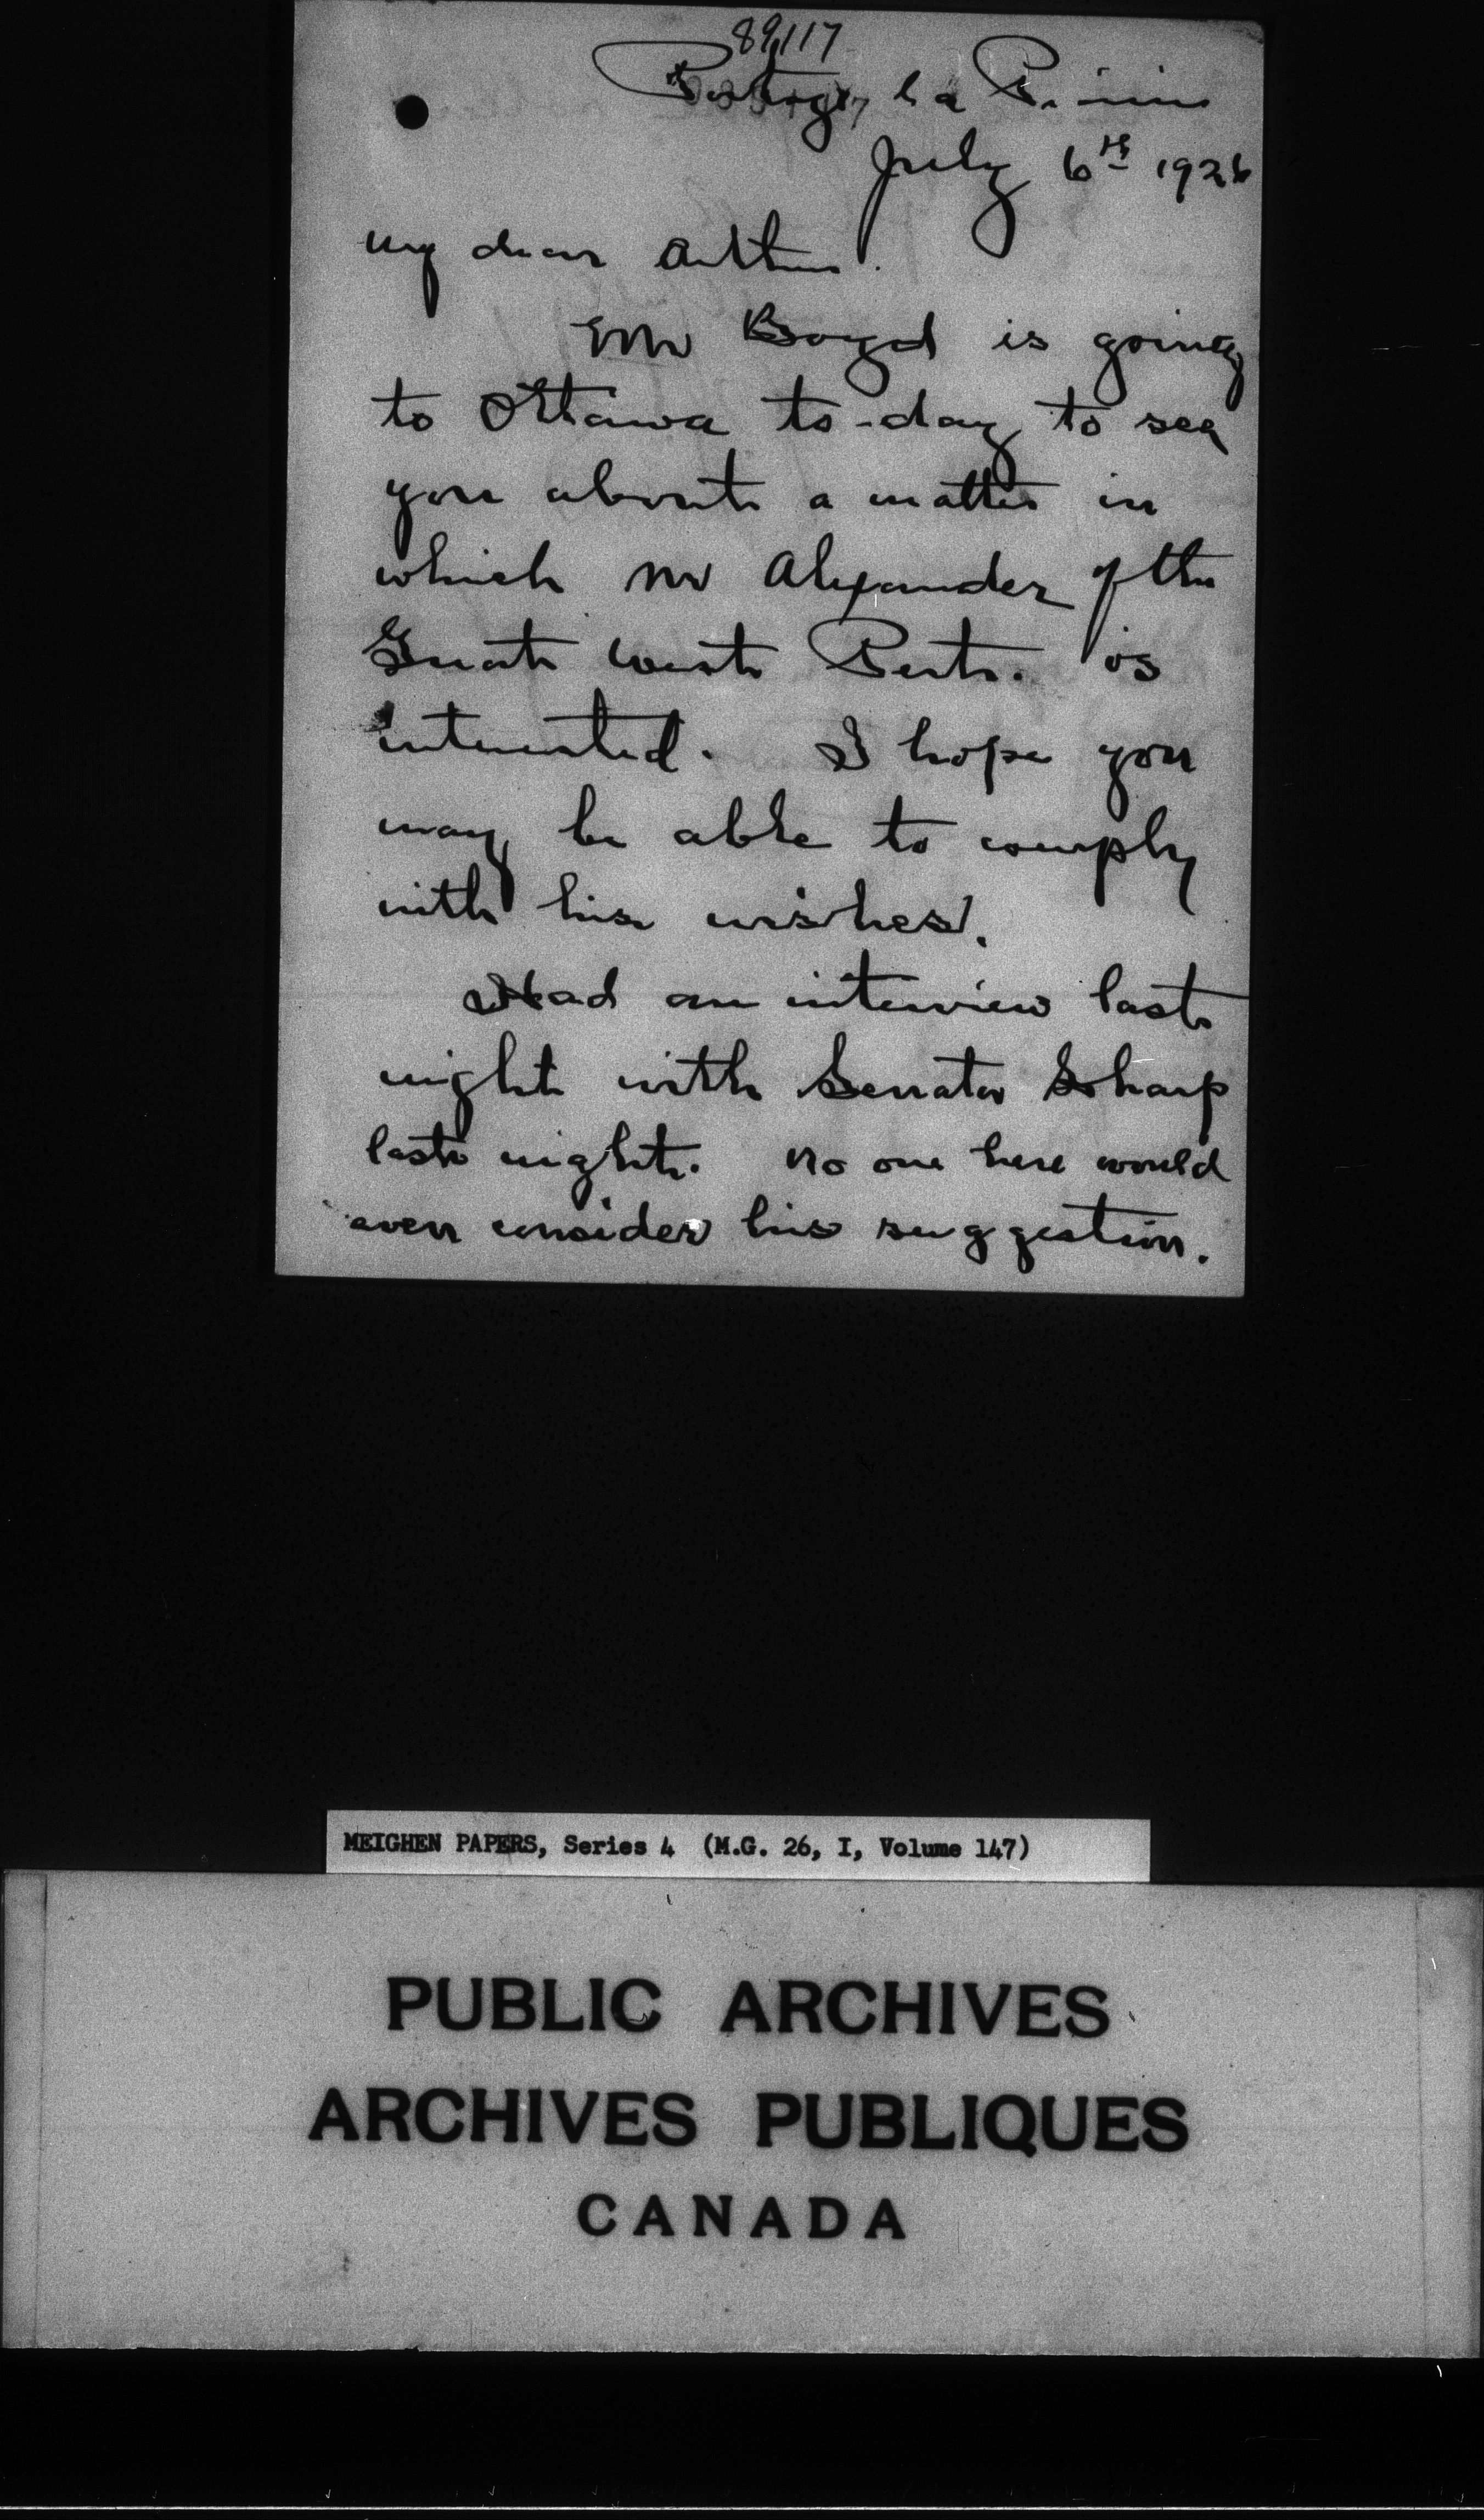 89,117
Portage la Prairie
July 6th 1926
My dear Arthur.
Mr Boyd is going
to Ottawa to-day to see
you about a matter in
which Mr Alexander of the
Great West Perts. is
interested. I hope you
may be able to comply
with his wishes.
Had an interview last
night with Senator Sharp
last night. No one here would
even consider his suggestion.
MEIGHEN PAPERS, Series 4 (M.G. 26, I, Volume 147)
PUBLIC ARCHIVES
ARCHIVES PUBLIQUES
CANADA